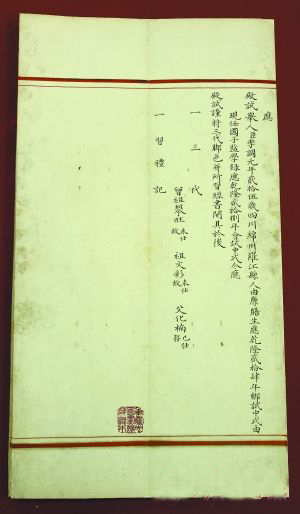 應
殿試舉人臣李調元年貳拾伍歲四川綿州羅江縣人由廩膳生應乾隆貳拾肆年鄉試中式由
現任國子監學錄應乾隆貳拾捌年會試中式今應
殿試謹將三代脚色并所習經書開具於後
一 三 代
曾祖攀旺 未仕 故 祖文彩 未仕 故 父化楠 已仕 存
一 習 禮 記